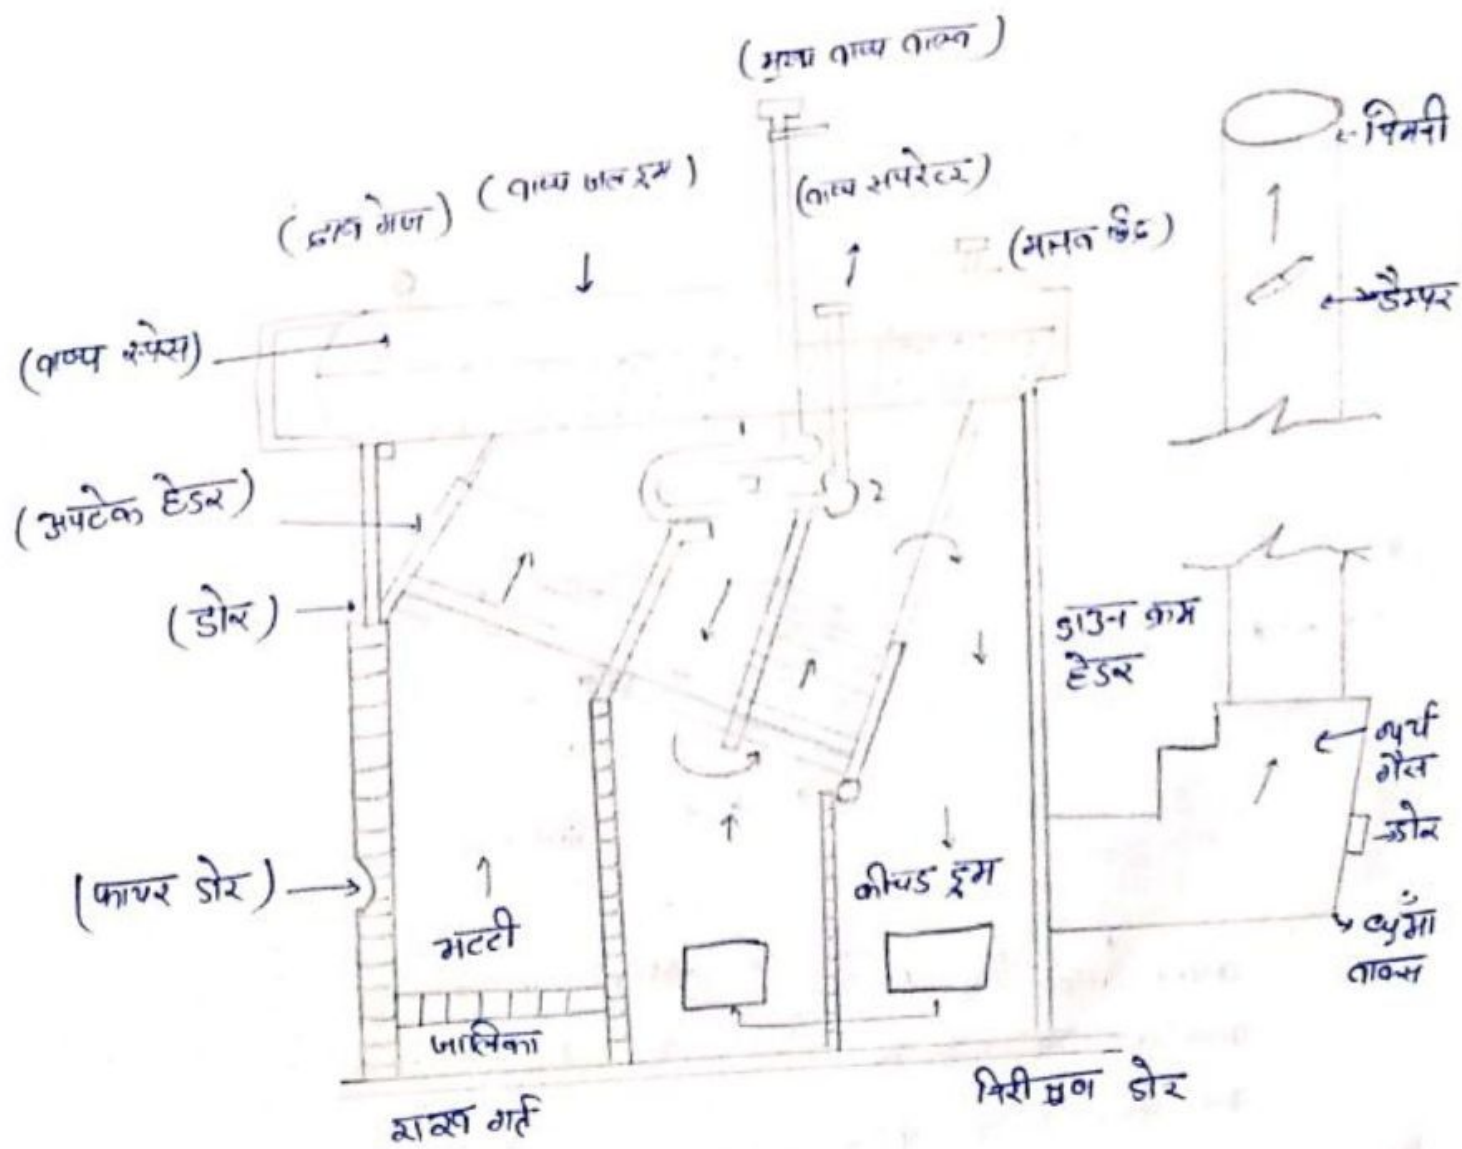 (मुख्य वाष्प वाल्व)
(वाष्प जल ड्रम)
(दाब गेज)
(वाष्प सपरेटर)
(मानव छिद्र)
चिमनी
डैम्पर
(वाष्प स्पेस)
(अपटेक हेडर)
(डोर)
डाउन काम
हेडर
व्यर्थ
गैस
डोर
(फायर डोर)
भटटी
कीचड ड्रम
धुँआ
बाक्स
जालिका
राख गर्त
निरीक्षण डोर
1
2